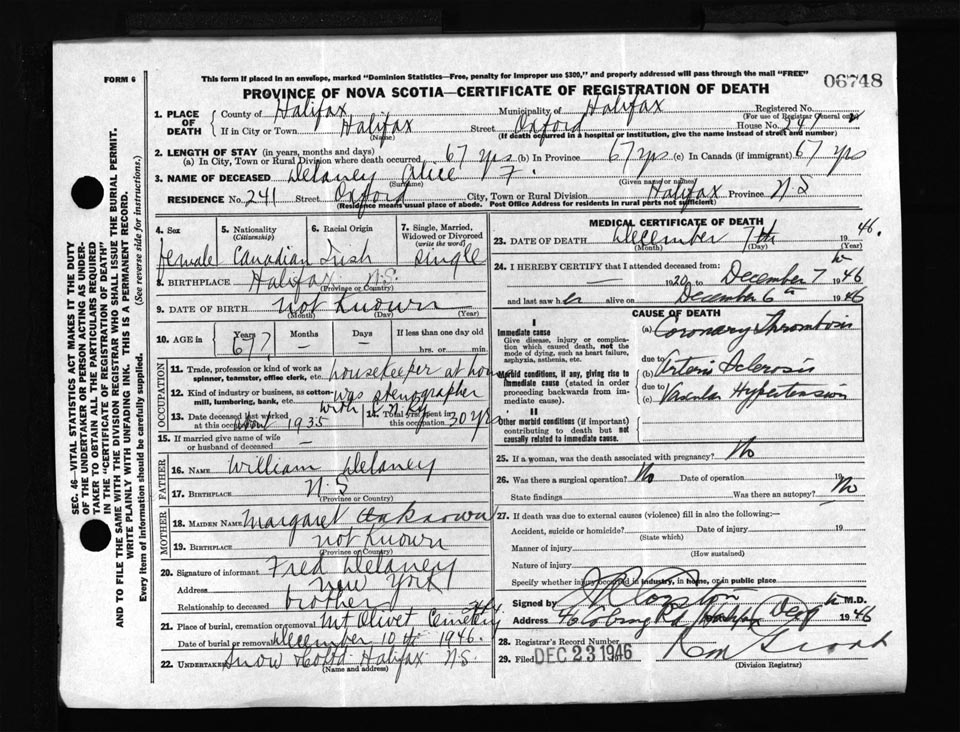 FORM 6
This form if placed in an envelope, marked "Dominion Statistics—Free, penalty for improper use $300," and properly addressed will pass through the mail "FREE"
06748
PROVINCE OF NOVA SCOTIA—CERTIFICATE OF REGISTRATION OF DEATH
1. PLACE OF DEATH
County of Halifax Municipality of Halifax Registered No.
(For use of Registrar General only)
If in City or Town Halifax Street Oxford House No. 241
(Name) (If death occurred in a hospital or institution, give the name instead of street and number)
2. LENGTH OF STAY (in years, months and days)
(a) In City, Town or Rural Division where death occurred 67 yrs (b) In Province 67 yrs (c) In Canada (if immigrant) 67 yrs
3. NAME OF DECEASED Delaney Alice F.
(Surname) (Given name or names)
RESIDENCE No. 241 Street Oxford City, Town or Rural Division Halifax Province N S
(Residence means usual place of abode. Post Office Address for residents in rural parts not sufficient)
4. Sex 5. Nationality (Citizenship) 6. Racial Origin 7. Single, Married, Widowed or Divorced (write the word)
female Canadian Irish single
8. BIRTHPLACE Halifax N.S.
(Province or Country)
9. DATE OF BIRTH not known
(Month) (Day) (Year)
10. AGE in Years Months Days If less than one day old
67 — — hrs. or min.
OCCUPATION
11. Trade, profession or kind of work as spinner, teamster, office clerk, etc. housekeeper at home
12. Kind of industry or business, as cotton-mill, lumbering, bank, etc. was stenographer
13. Date deceased last worked at this occupation 1935 14. Total years spent in this occupation 30 yrs
15. If married give name of wife or husband of deceased —
FATHER
16. NAME William Delaney
17. BIRTHPLACE N. S
(Province or Country)
MOTHER
18. MAIDEN NAME Margaret unknown
19. BIRTHPLACE not known
(Province or Country)
20. Signature of informant Fred Delaney
Address New York
Relationship to deceased brother
21. Place of burial, cremation or removal Mt Olivet Cemetery Hfx.
Date of burial or removal December 10th 1946.
22. UNDERTAKER Snow & Co Ltd Halifax N.S.
(Name and address)
MEDICAL CERTIFICATE OF DEATH
23. DATE OF DEATH December 7th 1946.
(Month) (Day) (Year)
24. I HEREBY CERTIFY that I attended deceased from:
— 1920 to December 7 1946
and last saw her alive on December 6th 1946
CAUSE OF DEATH
I
Immediate cause
Give disease, injury or complication which caused death, not the mode of dying, such as heart failure, asphyxia, asthenia, etc.
(a) Coronary Thrombosis
due to
Morbid conditions, if any, giving rise to immediate cause (stated in order proceeding backwards from immediate cause).
(b) Arterio Sclerosis
due to
(c) Vascular Hypertension
II
Other morbid conditions (if important) contributing to death but not causally related to immediate cause.
25. If a woman, was the death associated with pregnancy? No
26. Was there a surgical operation? No Date of operation 19
State findings Was there an autopsy? No
27. If death was due to external causes (violence) fill in also the following:—
Accident, suicide or homicide? Date of injury 19
(State which)
Manner of injury
(How sustained)
Nature of injury
Specify whether injury occurred in industry, in home, or in public place
Signed by M.D.
Address 46 Coburg Rd Halifax Dec 9 1946
28. Registrar's Record Number
29. Filed DEC 23 1946
(Division Registrar)
SEC. 46—VITAL STATISTICS ACT MAKES IT THE DUTY
OF THE UNDERTAKER OR PERSON ACTING AS UNDER-
TAKER TO OBTAIN ALL THE PARTICULARS REQUIRED
IN THE "CERTIFICATE OF REGISTRATION OF DEATH"
AND TO FILE THE SAME WITH THE DIVISION REGISTRAR WHO SHALL ISSUE THE BURIAL PERMIT.
WRITE PLAINLY WITH UNFADING INK. THIS IS A PERMANENT RECORD.
Every item of information should be carefully supplied. (See reverse side for instructions.)